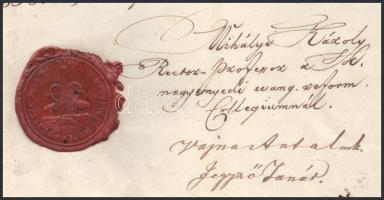 Mihályi Károly
Rector-Professor a
nagyenyedi evang. reform.
Collegiumnál.
Vajna Antal mk.
Jegyző Tanár.